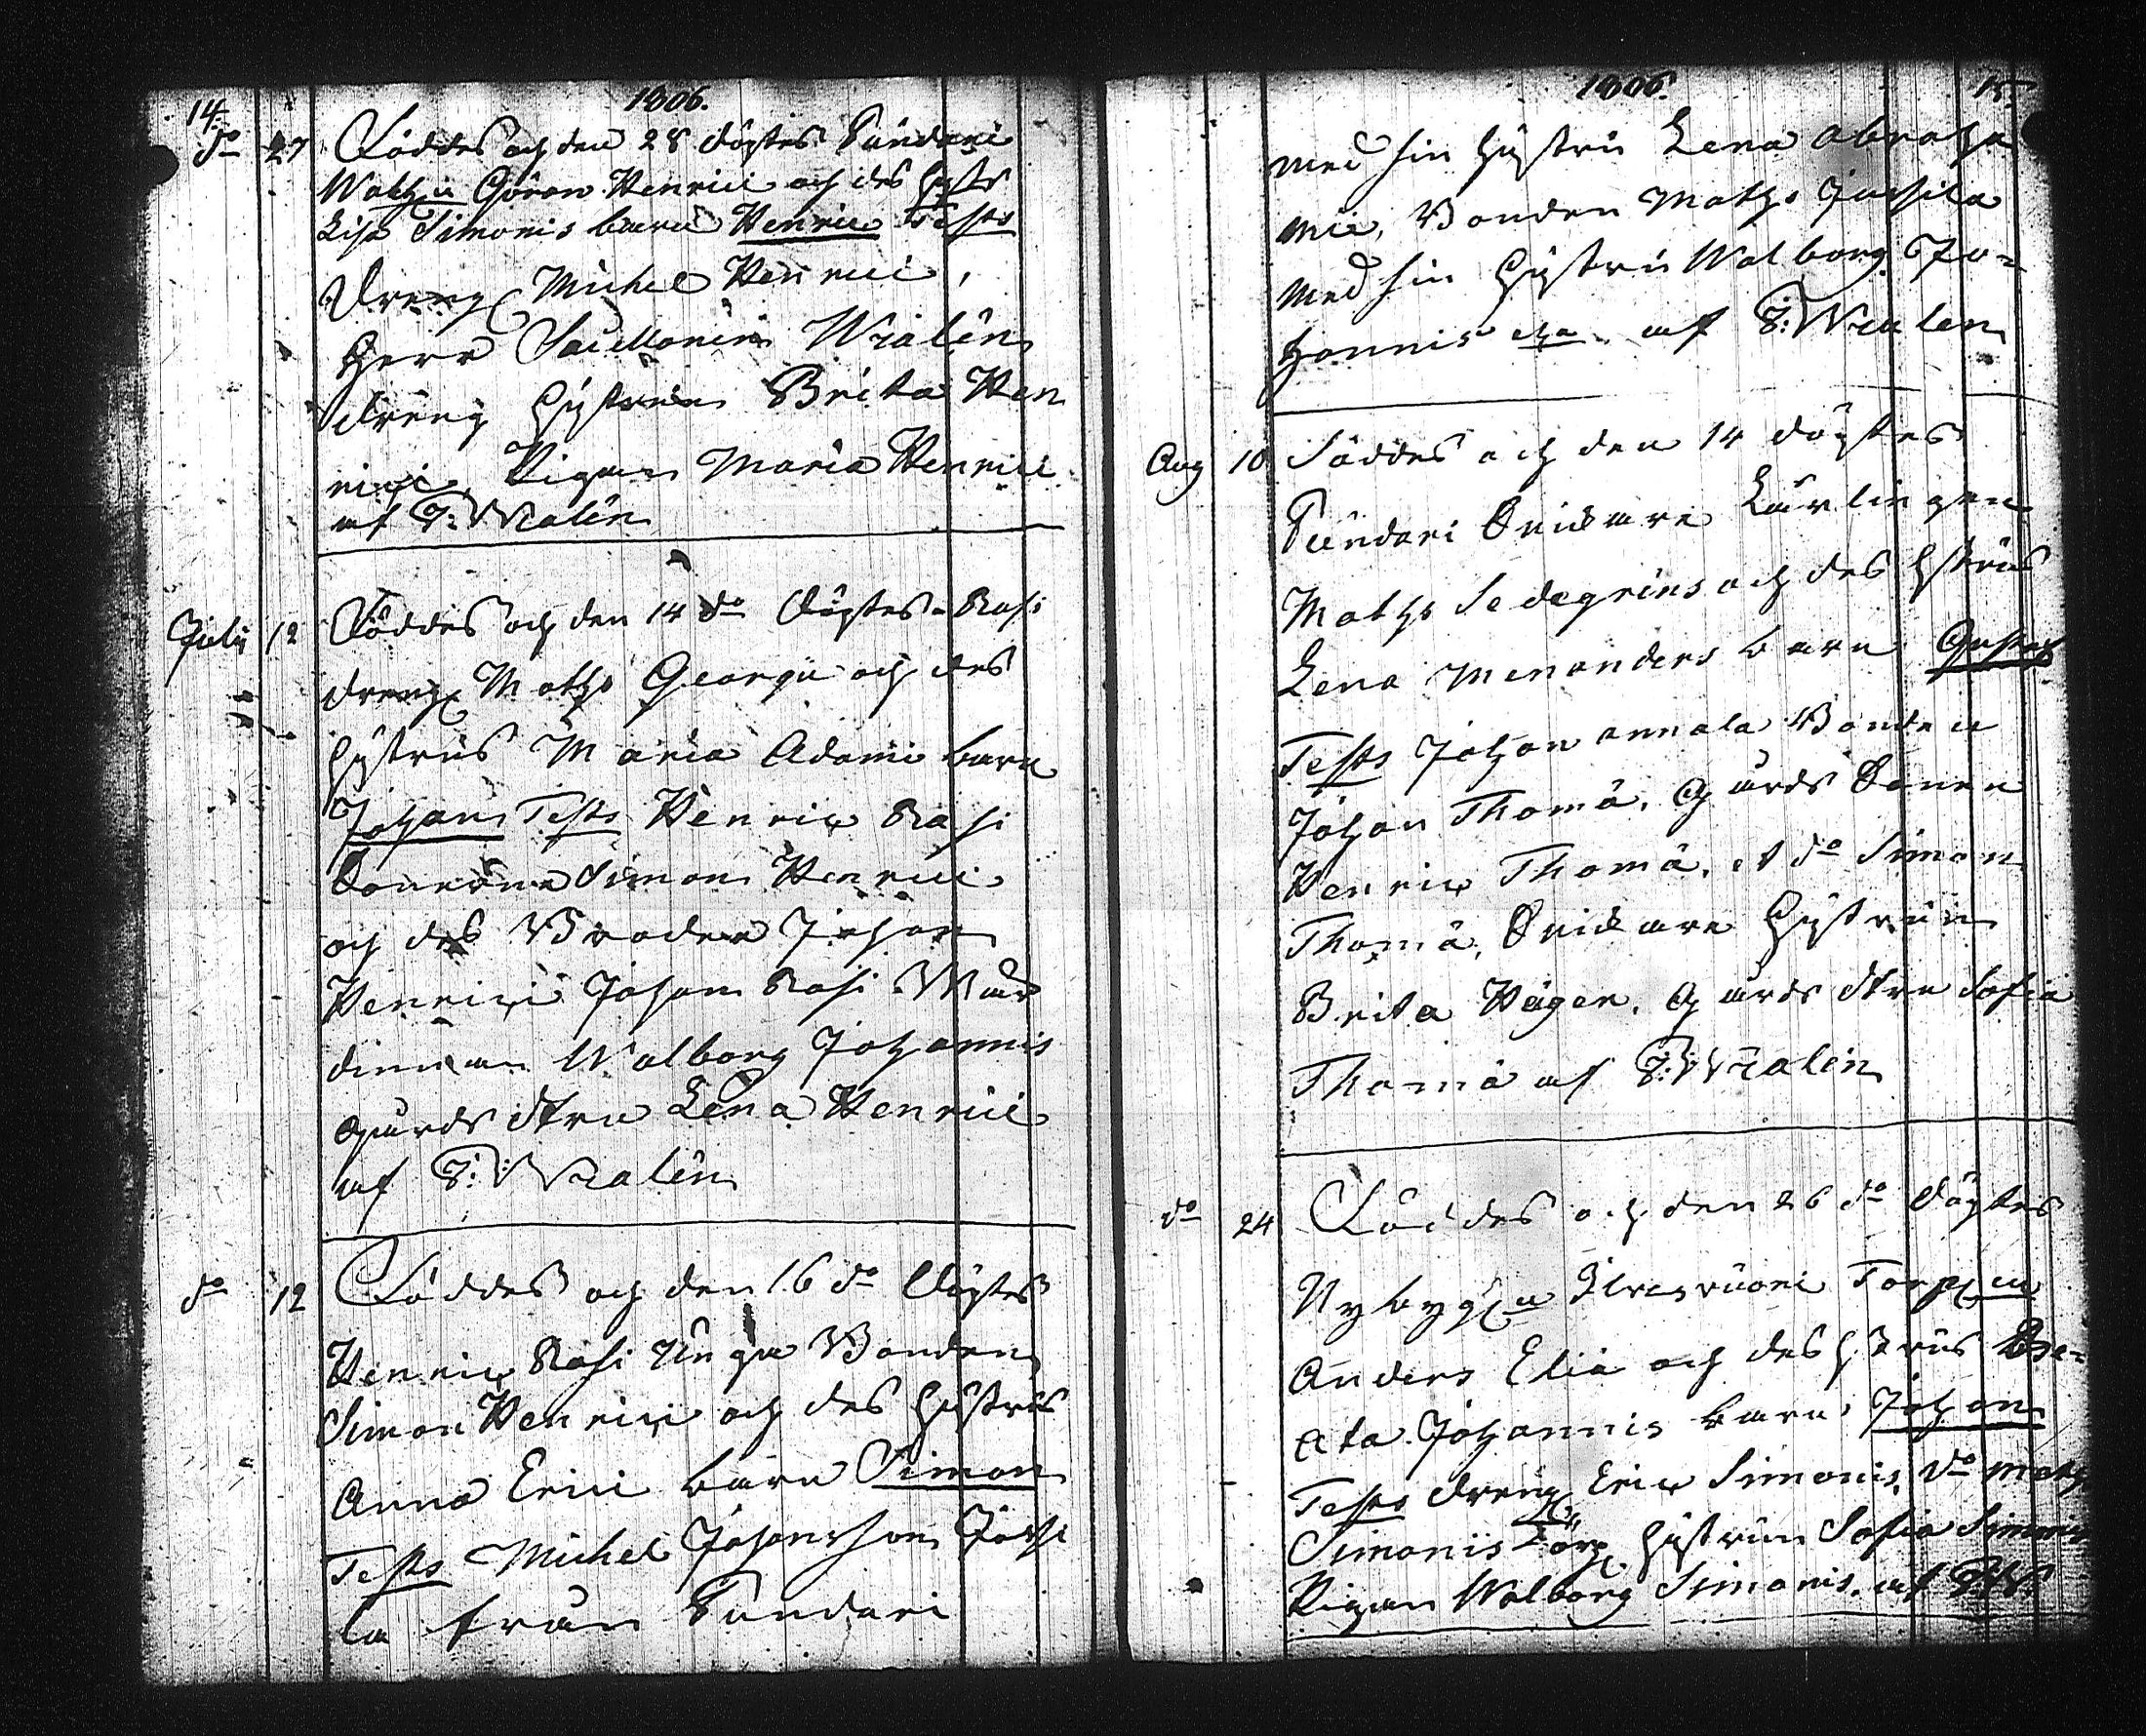 14.
1806.
do 27 Föddes och den 28 döptes Pundari
Göran Henrici och des hust
Lisa Simonis barn Henric Testes
dreng Michel Henrici,
Herr Wialén
dreng hustrun Brita Hen
rici, Pigan Maria Henrici
af J: Wialén
Julii 12 Föddes och den 14 do döptes Rasi
dreng Maths Georgii och des
hustrus Maria Adami barn
Johan Testes Henric Rasi
Sonen Simon Henrici
och des Broder Johan
Henrici Johan Rasi Wär
dinnan Walborg Johannis
gårds dtren Lena Henrici
af J: Wialén
do 12 Föddes och den 16 do döptes
Henric Rasi unga Bonden
Simon Henrici och des hustrus
Anna Erici barn Simon
Testes Michel Johansson
la från Pundari
1806.
15.
med sin hustru Lena Abraha
mi, Bonden Maths
med sin hustru Walborg Jo-
hannis af J: Wialen
Aug 10 Föddes och den 14 döptes
Pundari
Maths Sedegrens och des hstrus
Lena Menanders barn Gustaf
Testes Johan Annala Bonden
Johan Thomæ, Gårds Sonen
Henric Thomæ, et do Simon
Thomæ, hustrun
Brita Häger, Gårds dtren Sofia
Thomæ af J: Wialén
do 24 Föddes och den 26 do döptes
Nybygg Torp
Anders Eliæ och des hstrus Be-
ata Johannis barn Johan
Testes dreng Eric Simonis, do Maths
Simonis Torp hustrun Sofia Simonis
Pigan Walborg Simonis, af J:W.